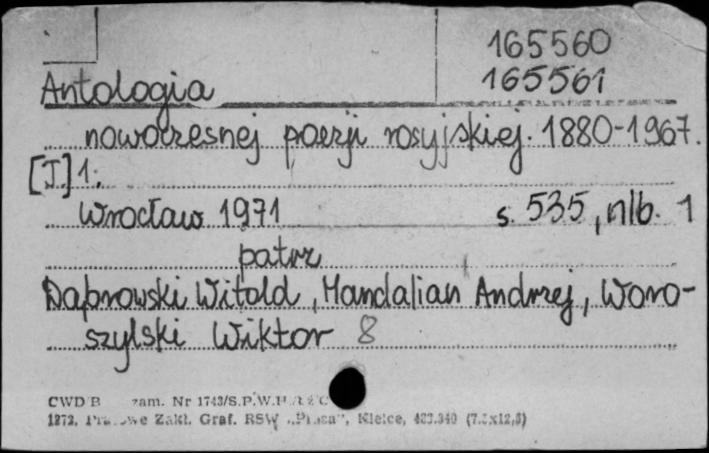 165560
165561
Antologia
nowoczesnej poezji rosyjskiej. 1880-1967.
[T.] 1.
Wrocław 1971 s. 535, nlb. 1
patrz
Dąbrowski Witold, Mandalian Andrzej, Woro-
szylski Wiktor 8
CWD/B zam. Nr 1743/S.P.W.H.
1972. Zakł. Graf. RSW „Prasa", Kielce,